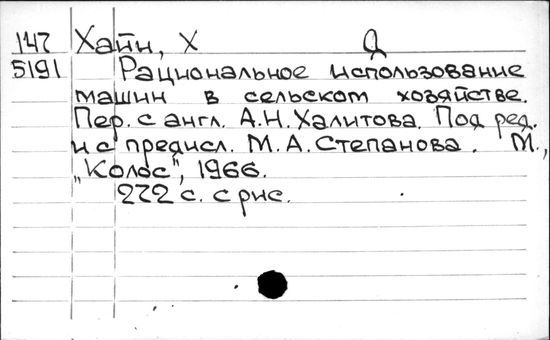 147 Хайн, Х Д
5191 Рациональное использование
машин в сельском хозяйстве.
Пер. с англ. А.Н.Халитова. Под ред.
и с предисл. М.А.Степанова. М.,
„Колос", 1966.
272 с. с рис.